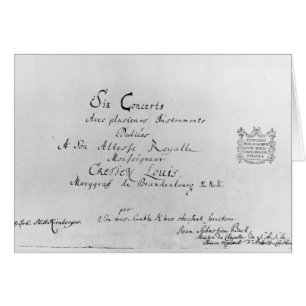 Six Concerts
Avec plusieurs Instruments
Dediées
A Son Altesse Royalle
Monseigneur
CRETIEN LOUIS.
Marggraf de Brandenbourg &c.&c.&c.
par
Son tres-humble & tres obeissant serviteur
Jean Sebastien Bach.
Maitre de Chapelle de S. A. S. le
Prince regnant d'Anhalt-Coethen